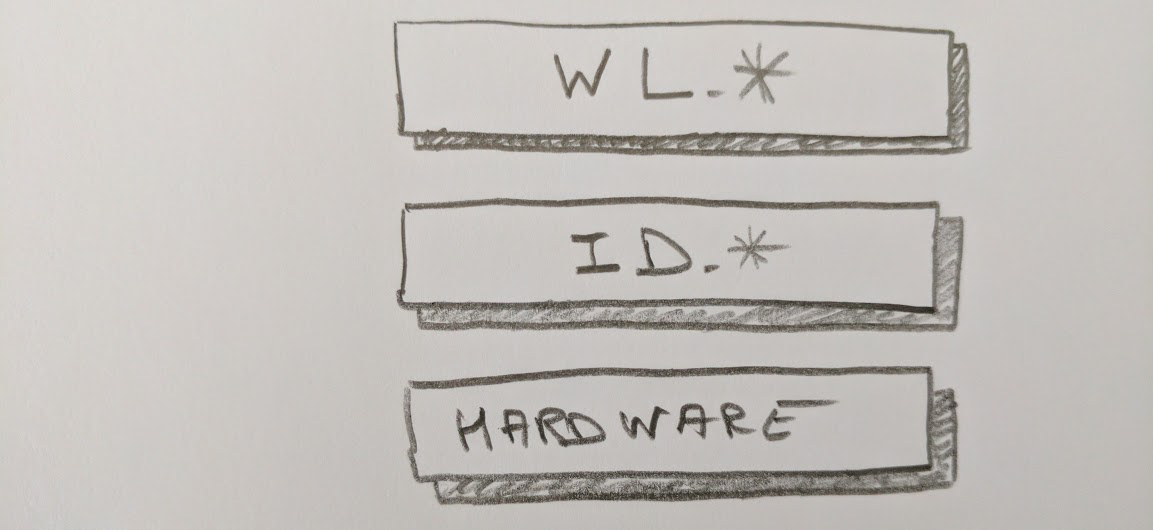 WL.*
ID.*
HARDWARE